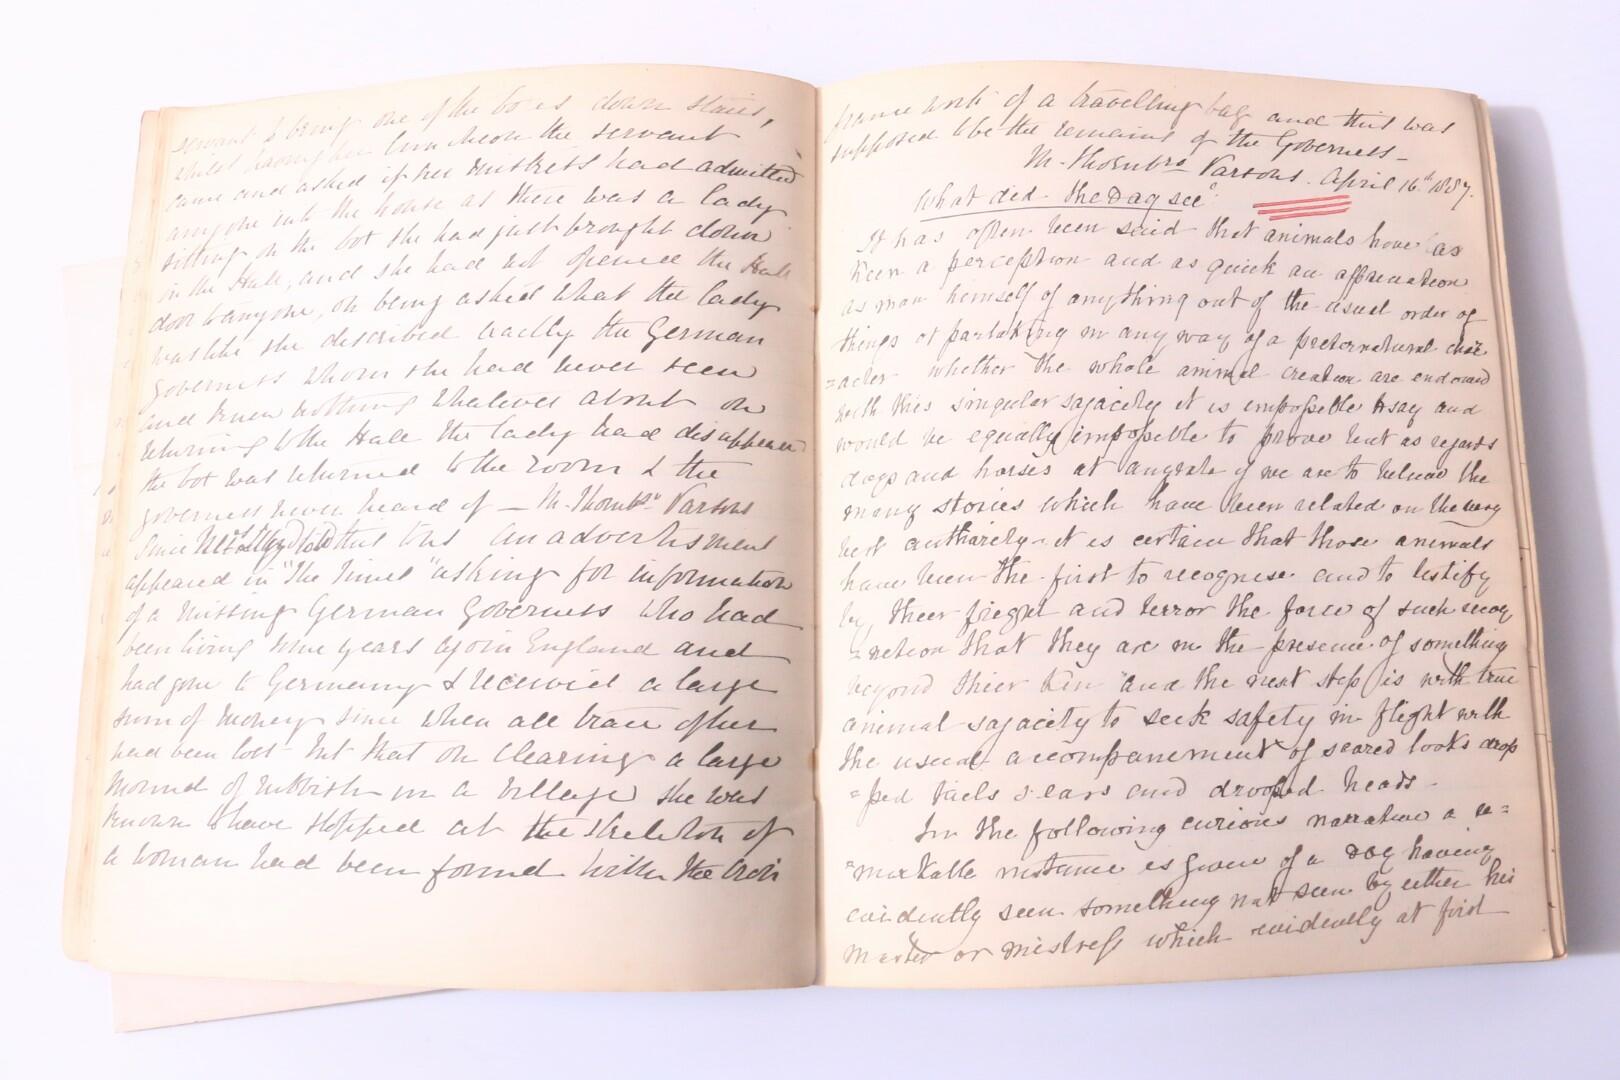 servant to bring one of the boxes down stairs,
whilst having her luncheon the servant
came and asked if her mistress had admitted
anyone into the house as there was a lady
sitting on the box she had just brought down
in the Hall, and she had not opened the Hall
door to anyone, on being asked what the lady
was like she described exactly the German
Governess whom she had never seen
and knew nothing whatever about on
returning to the Hall the lady had disappeared
the box was returned to the room & the
governess never heard of — M. Thornbro Parsons
Since Mrs told that this an advertisment
appeared in "The Times" asking for information
of a missing German Governess who had
been living some years ago in England and
had gone to Germany & received a large
sum of money since when all trace of her
had been lost – but that on clearing a large
mound of rubbish in a village she was
known to have stopped at the skeleton of
a woman had been found with the iron
frame work of a travelling bag and this was
supposed to be the remains of the Governess –
M. Thornbro Parsons. April 16th 1887.
What did the Dog see?
It has often been said that animals have as
keen a perception and as quick an appreciation
as man himself of anything out of the usual order of
things or partaking in any way of a preternatural char
=acter whether the whole animal creation are endowed
with this singular sajacity it is impossible to say and
would be equally impossible to prove but as regards
dogs and horses at anyrate if we are to beleive the
many stories which have been related on the very
best authiarety – it is certain that those animals
have been the first to recognise and to testify
by their frieght and terror the force of such recog
=netion that they are in the presence of something
beyond thier ken and the next step is with true
animal sajacity to seek safety in flight with
the usual accompanement of scared looks drop
=ped tails & ears and drooped heads –
In the following curious narrative a re=
=markable instance is given of a Dog having
evidently seen something not seen by either his
master or mistress which evidently at first